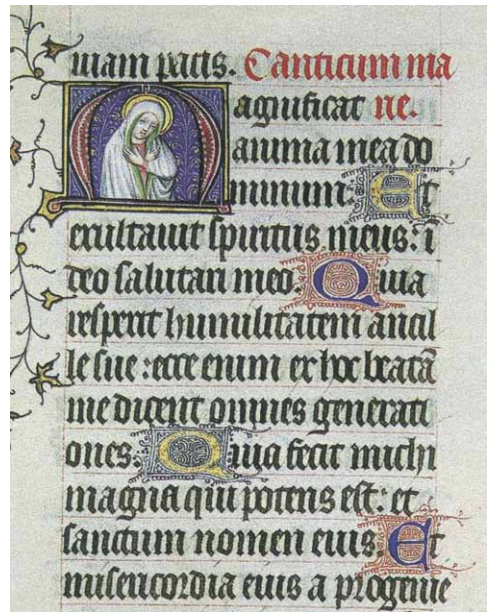 uiam pacis. Canticum ma
Magnificat rie.
anima mea do
minum: Et
exultauit spiritus meus: ī
deo salutari meo. Quia
respexit humilitatem ancil
le sue: ecce enim ex hoc beatā
me dicent omnes generati
ones. Quia fecit michi
magna qui potens est: et
sanctum nomen eius. Et
misericordia eius a progenie